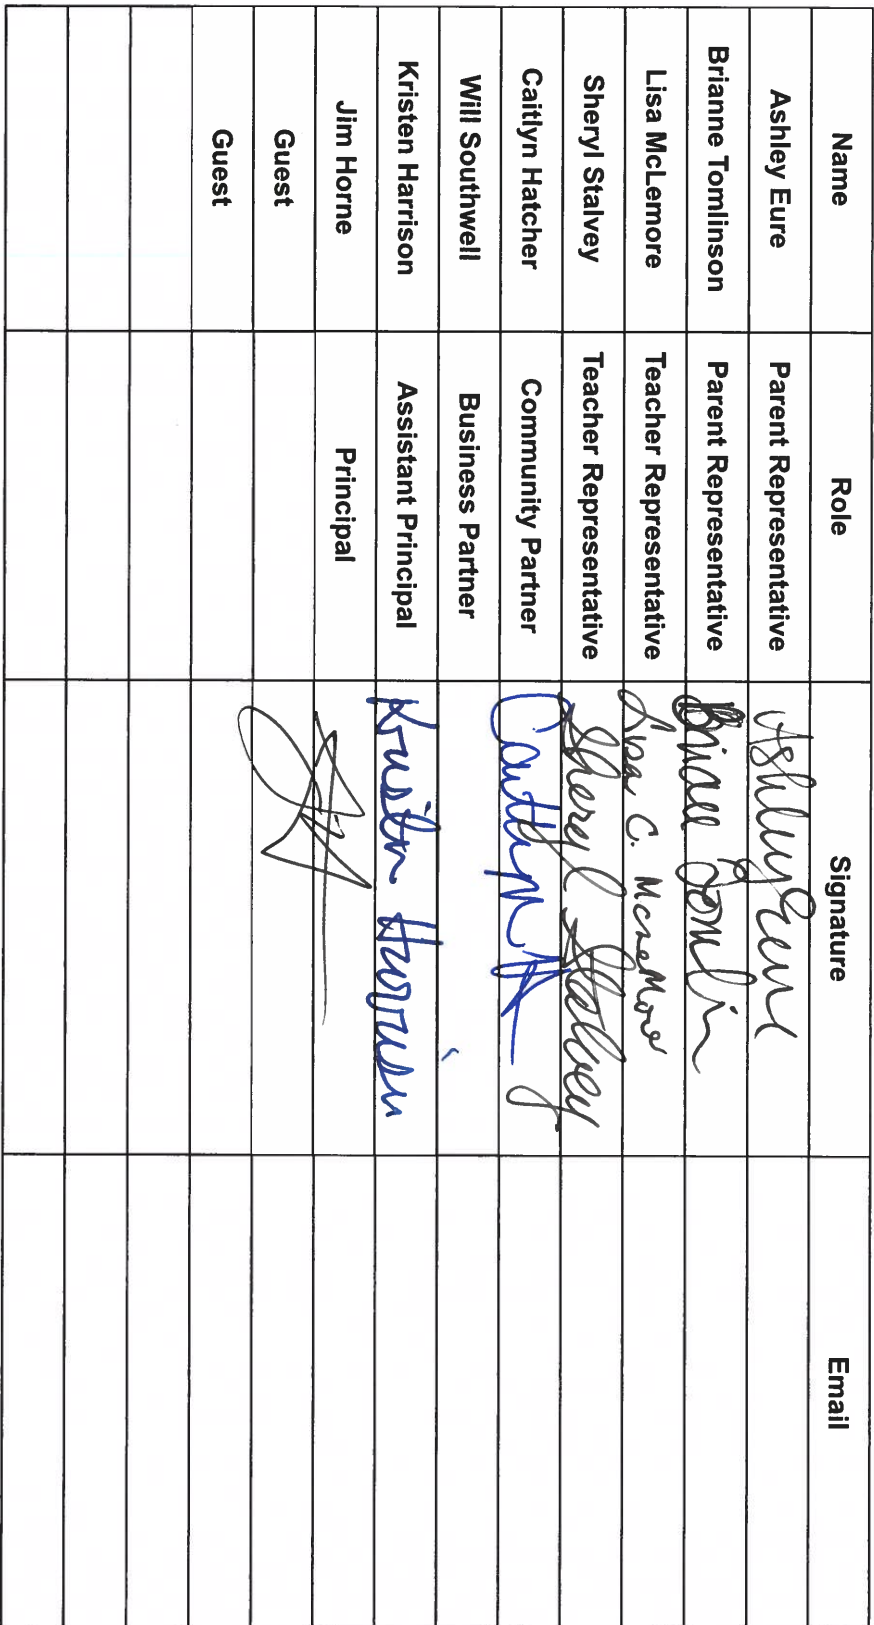 Name Role Signature Email
Ashley Eure Parent Representative Ashley Eure
Brianne Tomlinson Parent Representative
Lisa McLemore Teacher Representative Lisa C. McLemore
Sheryl Stalvey Teacher Representative Sheryl Stalvey
Caitlyn Hatcher Community Partner Caitlyn
Will Southwell Business Partner
Kristen Harrison Assistant Principal Kristen Harrison
Jim Horne Principal
Guest
Guest